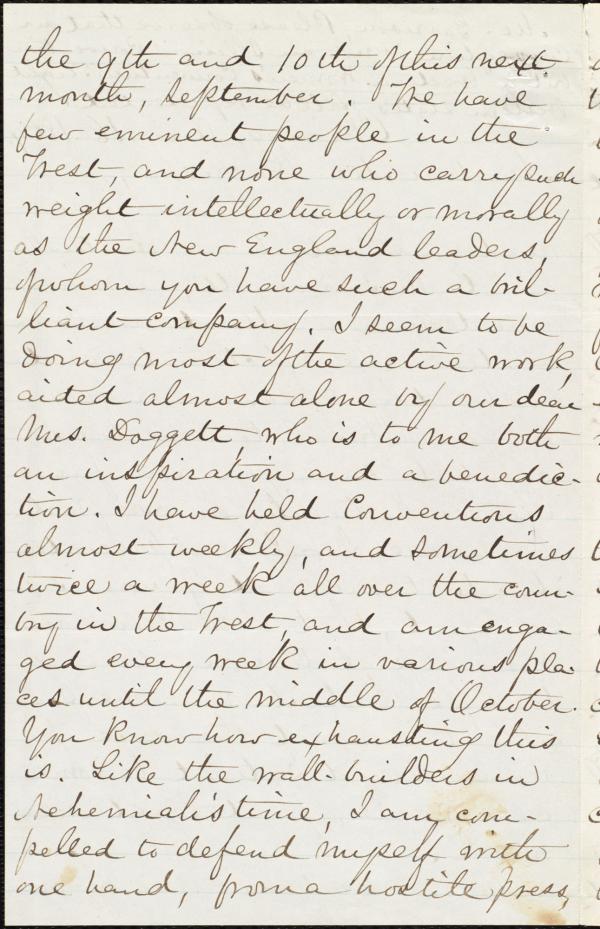 the 9th and 10th of this next
month, September. We have
few eminent people in the
West, and none who carry such
weight intellectually or morally
as the New England leaders,
of whom you have such a bril-
liant company. I seem to be
doing most of the active work,
aided almost alone by our dear
Mrs. Doggett, who is to me both
an inspiration and a benedic-
tion. I have held Conventions
almost weekly, and sometimes
twice a week all over the coun-
try in the West, and am enga-
ged every week in various pla-
ces until the middle of October.
You know how exhausting this
is. Like the wall-builders in
Nehemiah's time, I am com-
pelled to defend myself with
one hand, from a hostile press,